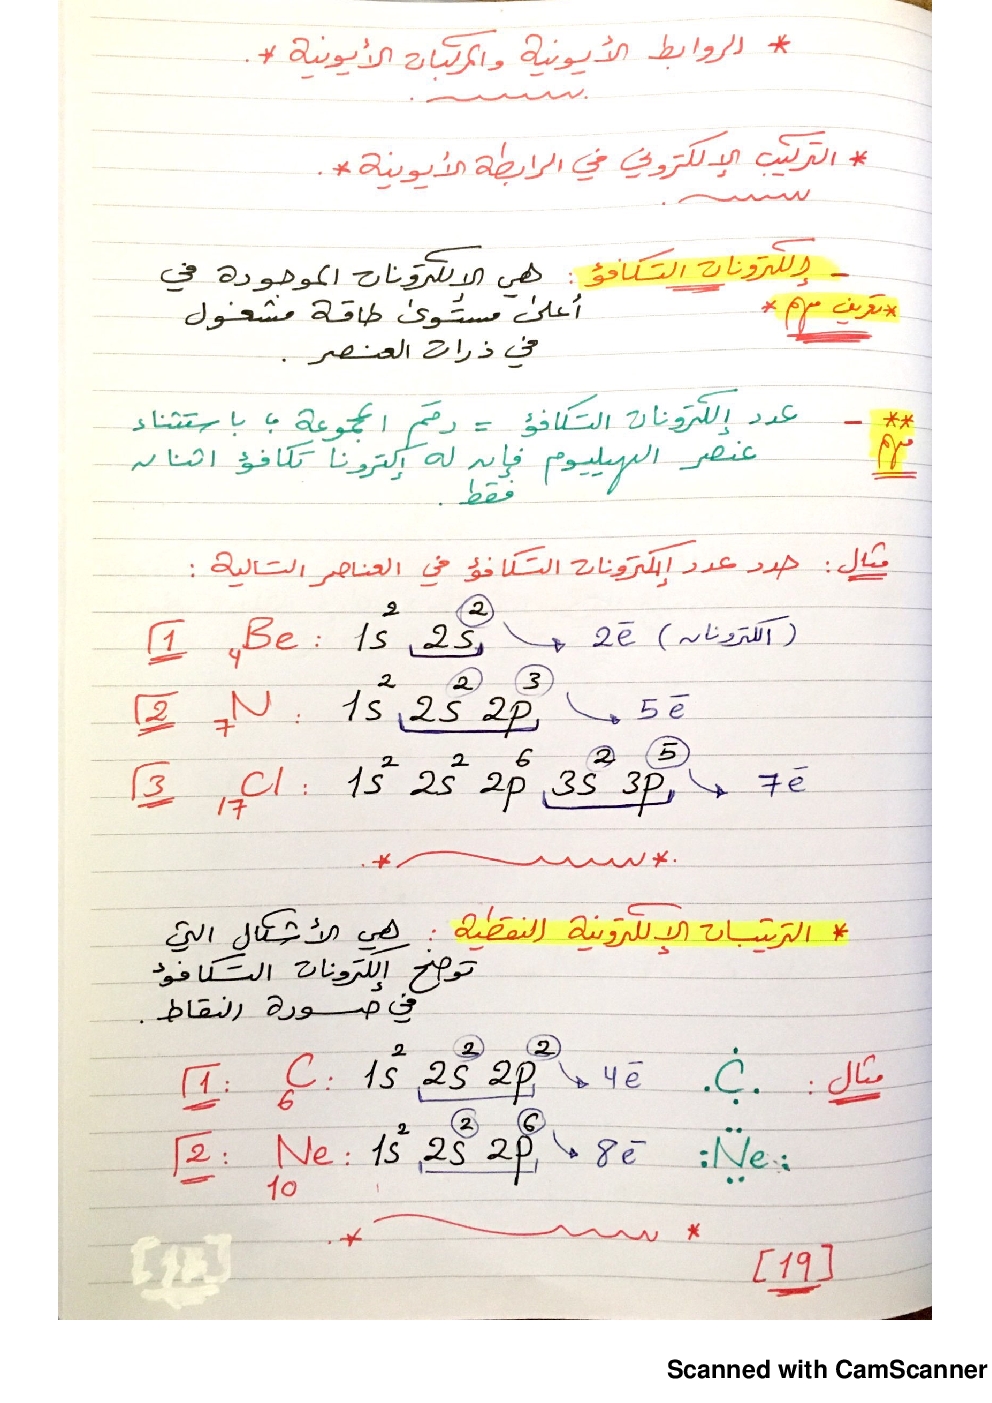 * الروابط الأيونية والمركبات الأيونية *.
* التركيب الإلكتروني في الرابطة الأيونية *.
- إلكترونات التكافؤ : هي الإلكترونات الموجودة في
*تعريف مهم* أعلى مستوى طاقة مشغول
في ذرات العنصر .
** مهم - عدد إلكترونات التكافؤ = رقم المجموعة ، باستثناء
عنصر الهيليوم فإن له إلكترونا تكافؤ اثنان
فقط .
مثال : حدد عدد إلكترونات التكافؤ في العناصر التالية :
1 ₄Be : 1s² 2s² → 2ē (إلكترونان)
2 ₇N : 1s² 2s² 2p³ → 5ē
3 ₁₇Cl : 1s² 2s² 2p⁶ 3s² 3p⁵ → 7ē
* الترتيبات الإلكترونية النقطية : هي الأشكال التي
توضح إلكترونات التكافؤ
في صورة النقاط .
مثال :
1: ₆C : 1s² 2s² 2p² → 4ē .C.
2: ₁₀Ne : 1s² 2s² 2p⁶ → 8ē :Ne:
[19]
Scanned with CamScanner